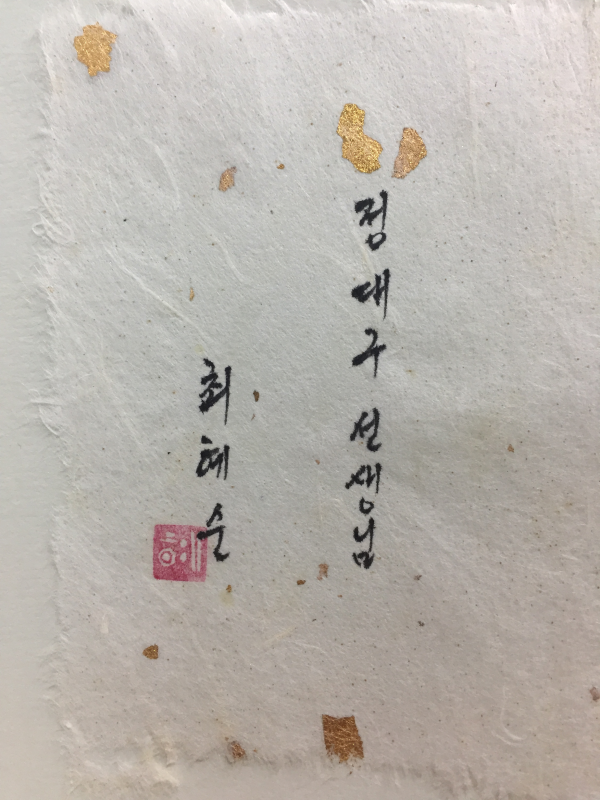 정대구 선생님
최혜순